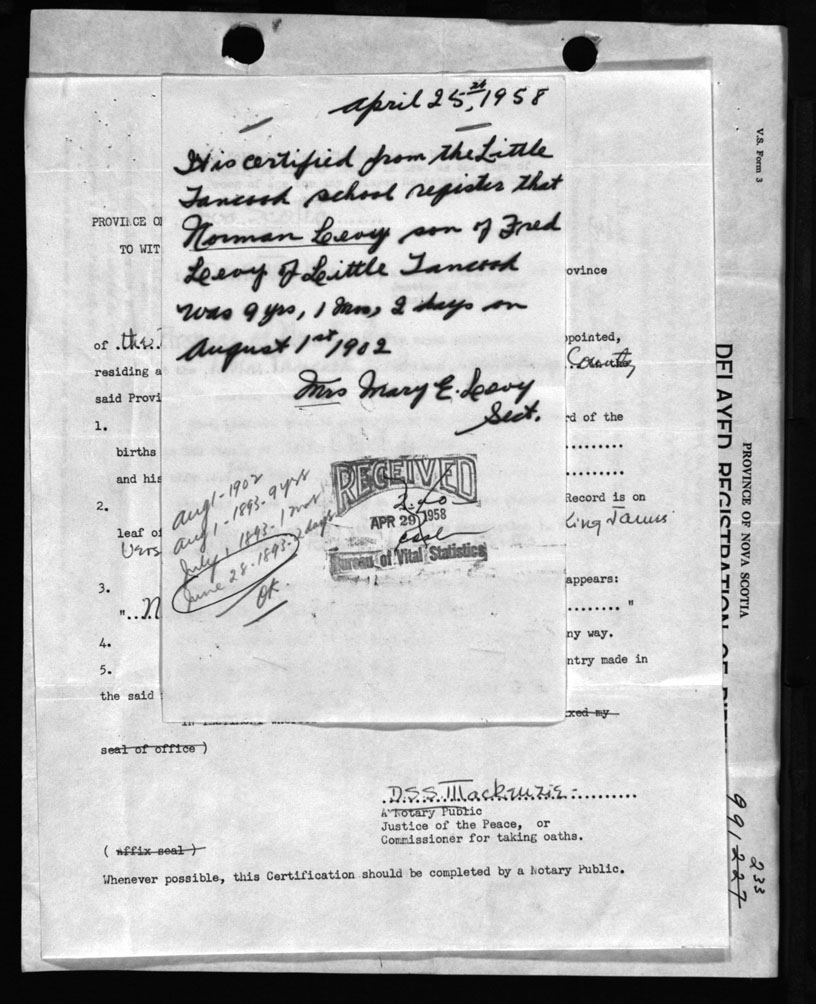 April 25th, 1958
It is certified from the Little
Tancook school register that
Norman Levy son of Fred
Levy of Little Tancook
was 9 yrs, 1 Mos, 2 days on
August 1st 1902
Mrs Mary E. Levy
Sect.
Aug 1 - 1902
Aug 1 - 1893 - 9 yrs
July 1, 1893 - 1 mo
June 28 - 1893 - 2 days
OK.
RECEIVED
APR 29 1958
Bureau of Vital Statistics
PROVINCE O
TO WIT
ovince
of .the
ppointed,
residing a
County
said Provi
1.
rd of the
births
and his
2.
Record is on
leaf of
King James
Vers
3.
appears:
"...N
......... "
4.
ny way.
5.
ntry made in
the said
xed my
seal of office )
D.S.S. Mackenzie
A Notary Public
Justice of the Peace, or
Commissioner for taking oaths.
( affix seal )
Whenever possible, this Certification should be completed by a Notary Public.
V.S. Form 3
PROVINCE OF NOVA SCOTIA
DELAYED REGISTRATION OF BIRTH
233
991227